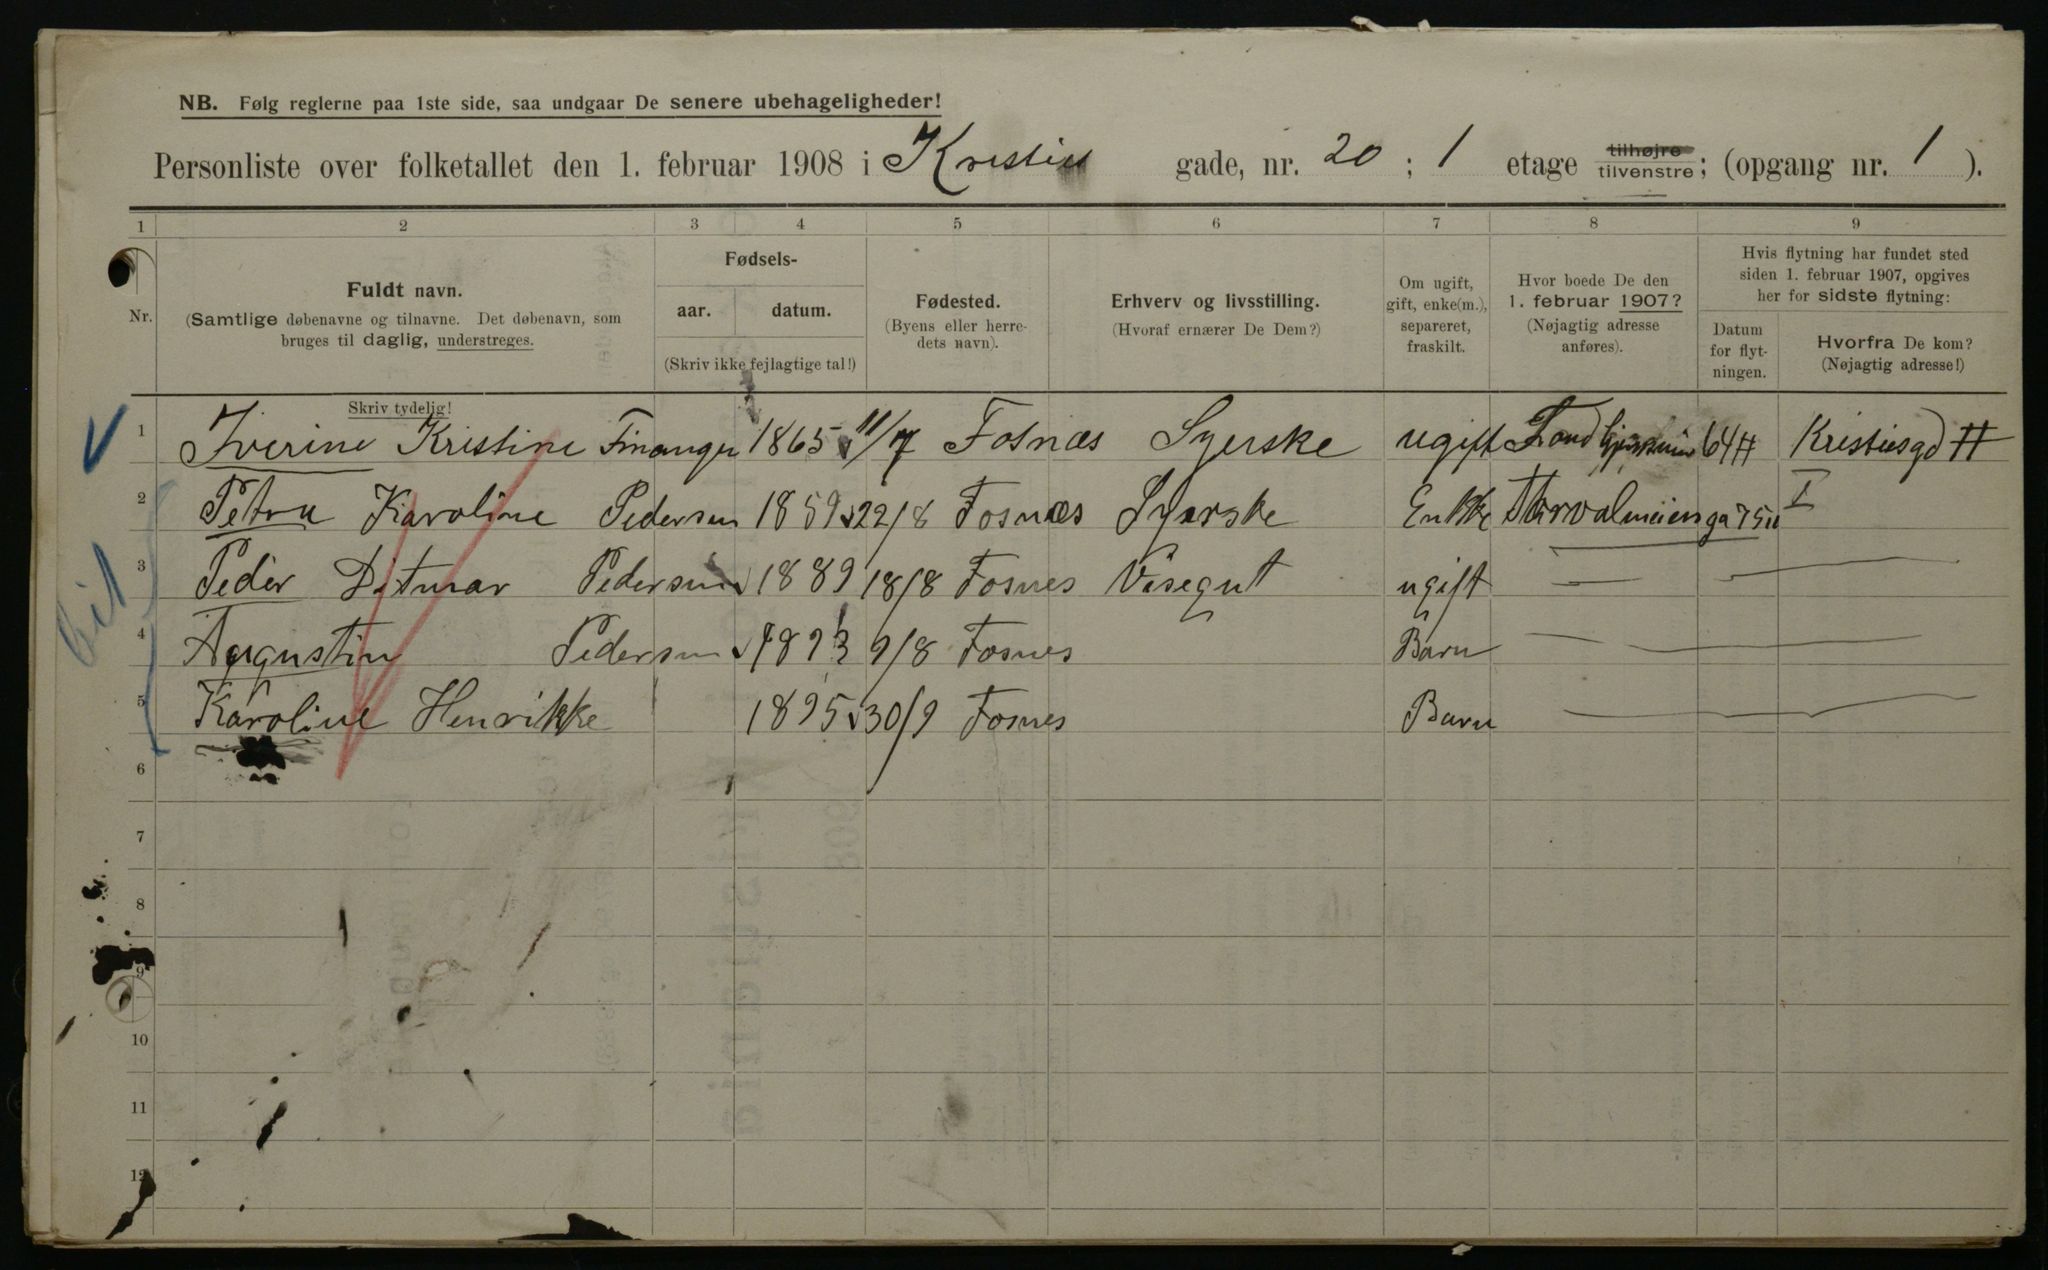 NB. Følg reglerne paa 1ste side, saa undgaar De senere ubehageligheder!
Personliste over folketallet den 1. februar 1908 i Kristies gade, nr. 20 ; 1 etage tilhøjre tilvenstre ; (opgang nr. 1 ).
1 2 3 4 5 6 7 8 9
Nr.
Fuldt navn.
(Samtlige døbenavne og tilnavne. Det døbenavn, som
bruges til daglig, understreges.
Skriv tydelig!
Fødsels-
aar. datum.
(Skriv ikke fejlagtige tal!)
Fødested.
(Byens eller herre-
dets navn).
Erhverv og livsstilling.
(Hvoraf ernærer De Dem?)
Om ugift,
gift, enke(m.),
separeret,
fraskilt.
Hvor boede De den
1. februar 1907?
(Nøjagtig adresse
anføres).
Hvis flytning har fundet sted
siden 1. februar 1907, opgives
her for sidste flytning:
Datum
for flyt-
ningen.
Hvorfra De kom?
(Nøjagtig adresse!)
1 Iverine Kristine Finanger 1865 11/7 Fosnæs Syerske ugift 64 II Kristiesgd II
2 Petra Karoline Pedersen 1859 22/8 Fosnæs Syerske Enkke I
3 Peder Ditmar Pedersen 1889 18/8 Fosnes Visegut ugift
4 Augustin Pedersen 1893 9/8 Fosnes Barn
5 Karoline Henrikke 1895 30/9 Fosnes Barn
6
7
8
9
10
11
12